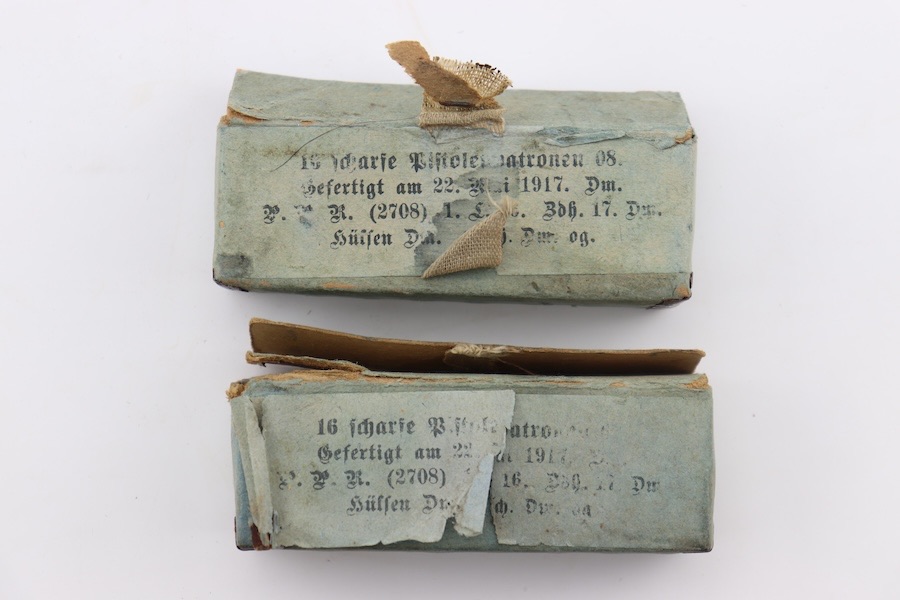 16 scharfe Pistolenpatronen 08.
Gefertigt am 22. Mai 1917. Dm.
P. P. R. (2708) 1. L. 16. Zdh. 17. Dm.
Hülsen Dm. Dm. og.
16 scharfe
Gefertigt am 22. 1917.
P. P. R. (2708) 16. Zdh. 17. Dm
Hülsen ch. Dm. og